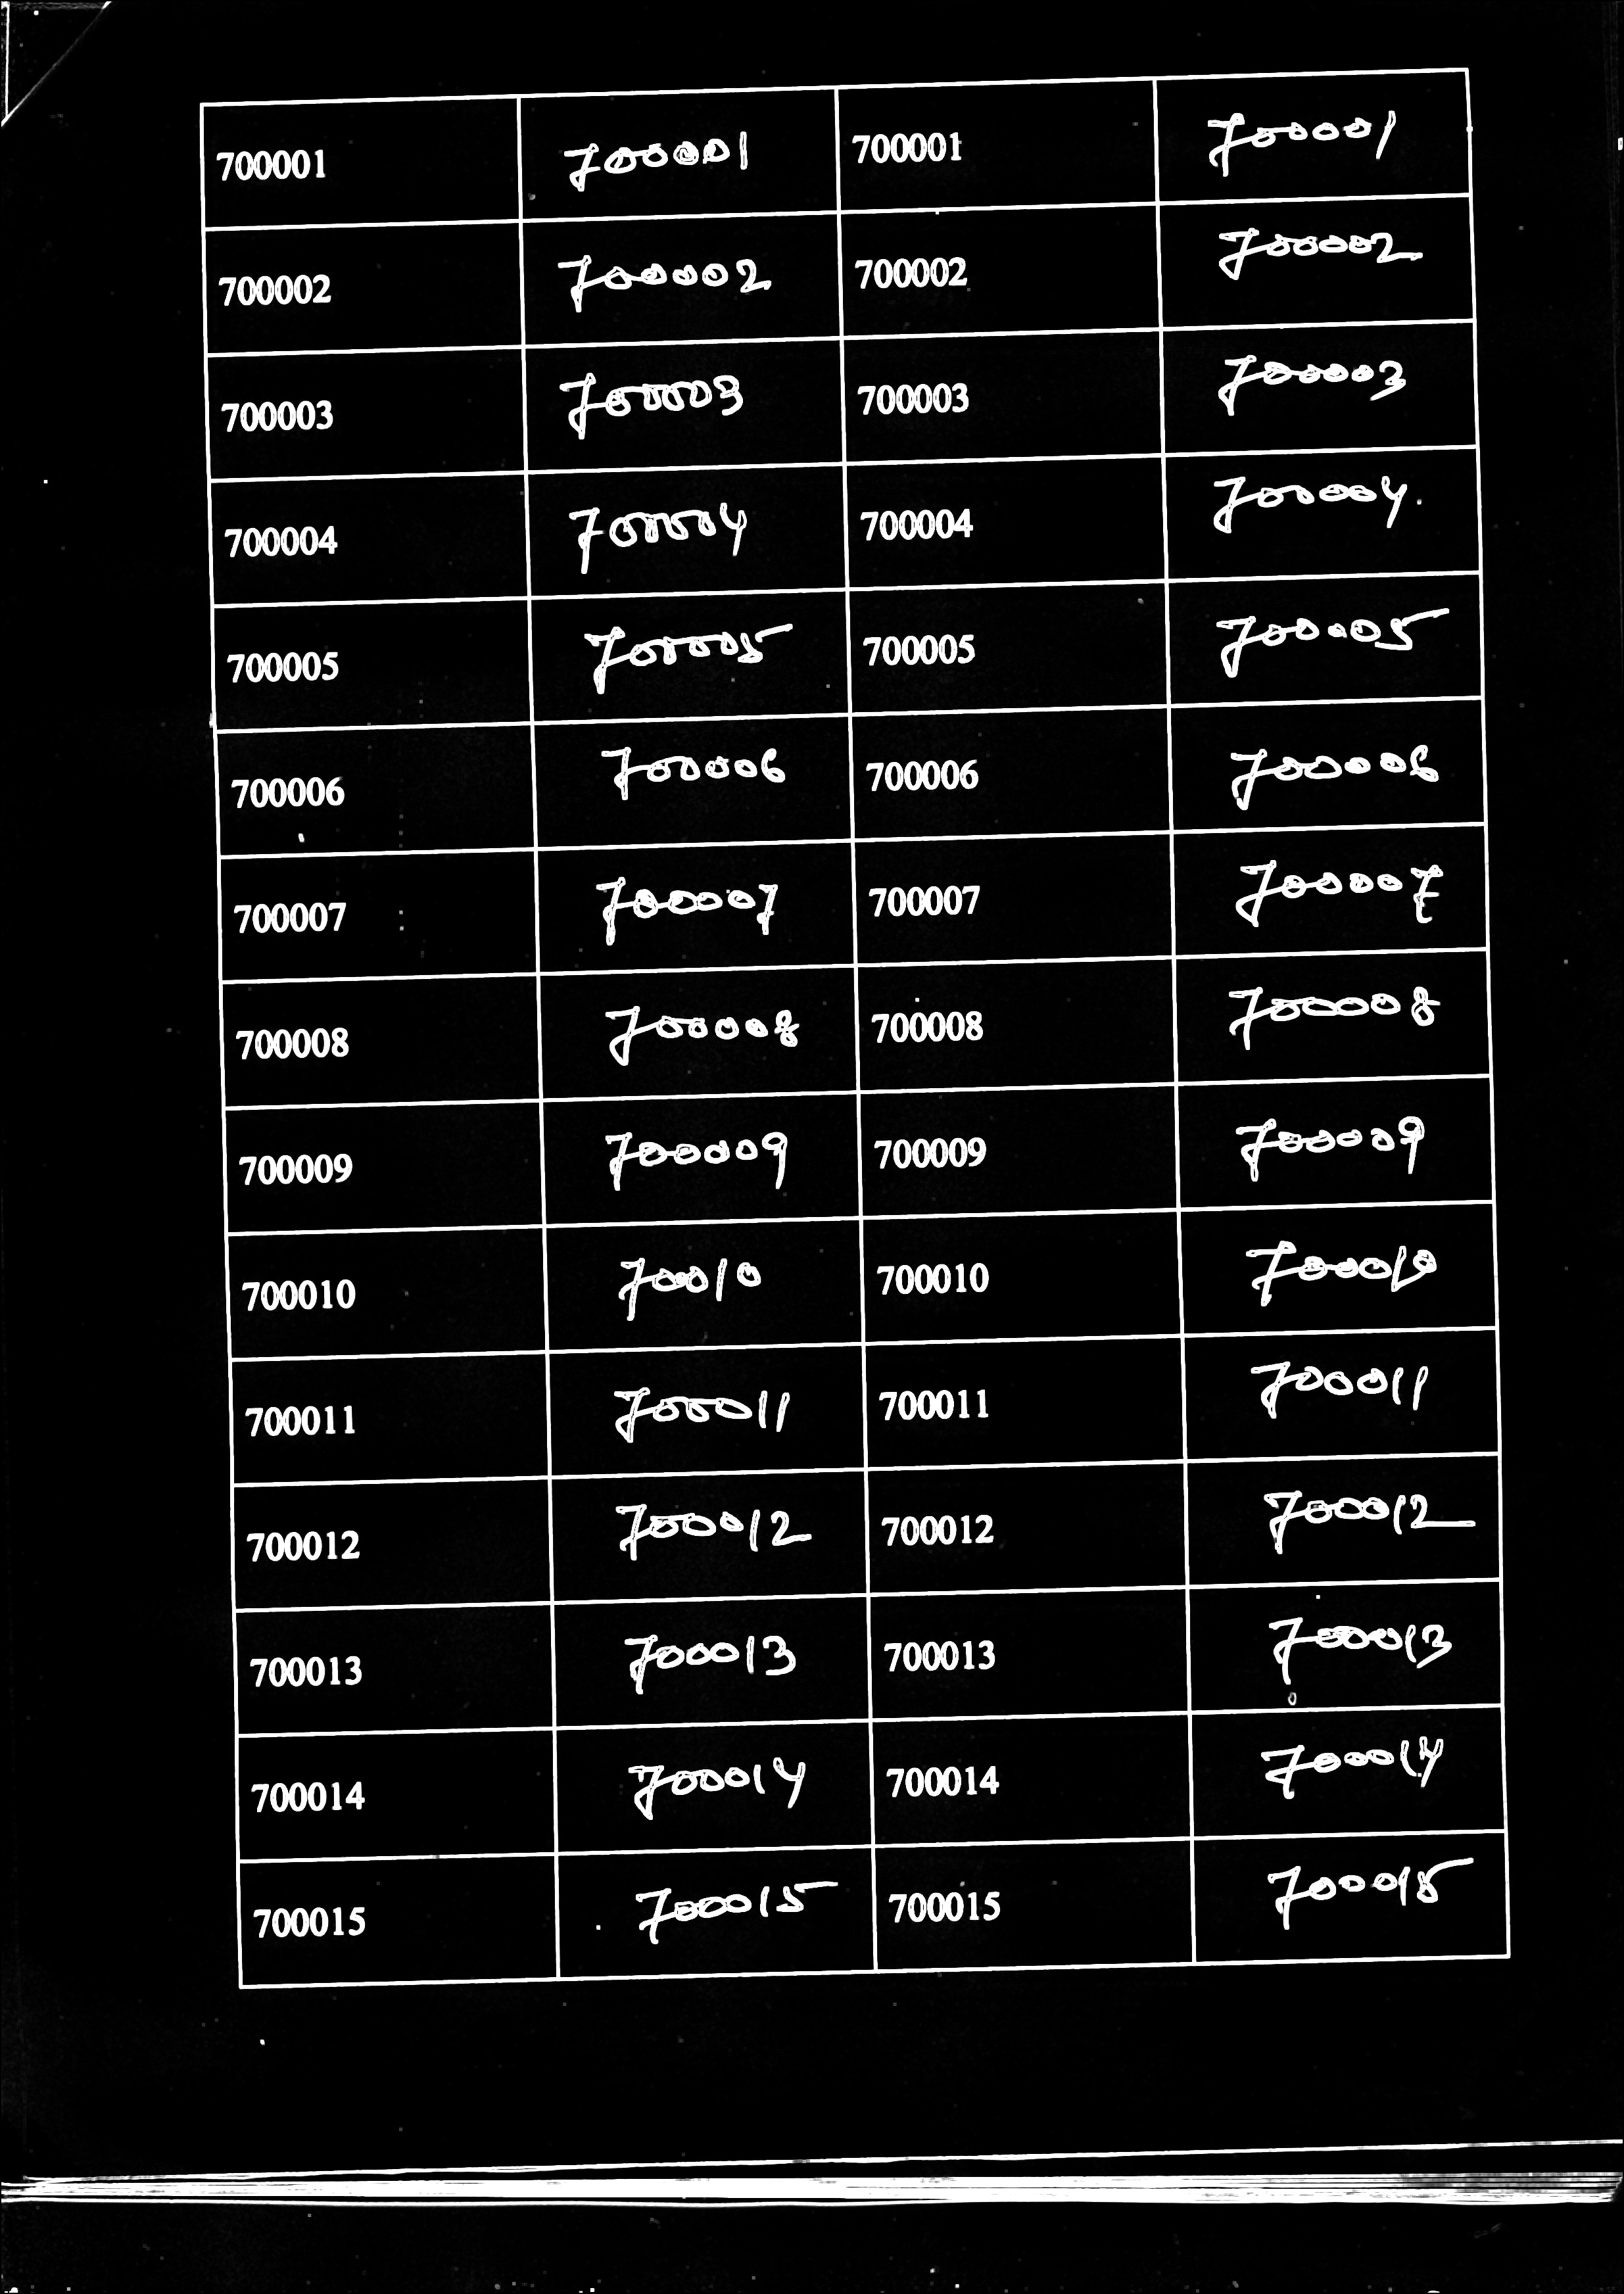 700001 700001 700001 700001
700002 700002 700002 700002
700003 700003 700003 700003
700004 700004 700004 700004.
700005 700005 700005 700005
700006 700006 700006 700006
700007 700007 700007 700007
700008 700008 700008 700008
700009 700009 700009 700009
700010 70010 700010 700010
700011 700011 700011 700011
700012 700012 700012 700012
700013 700013 700013 700013
700014 700014 700014 700014
700015 700015 700015 700015